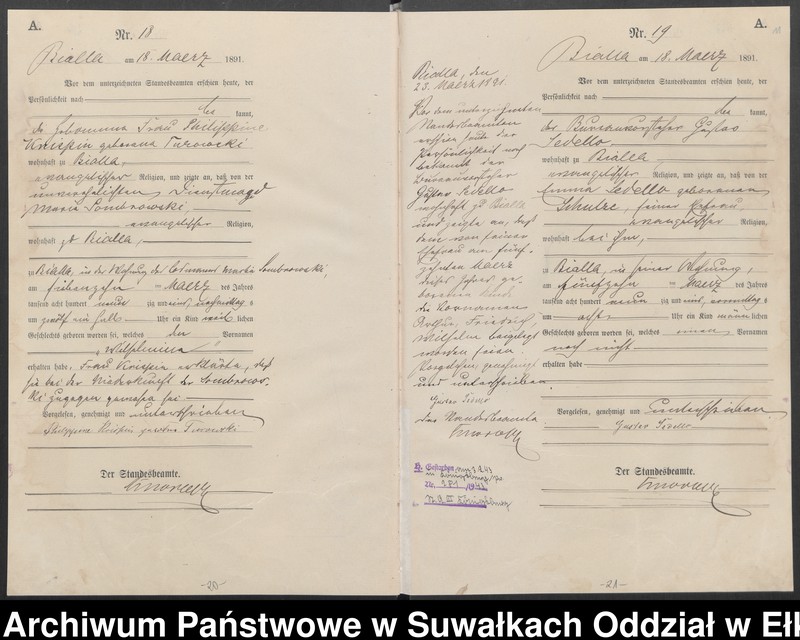 A.
Nr. 18
Bialla am 18. Maerz 1891.
Vor dem unterzeichneten Standesbeamten erschien heute, der
Persönlichkeit nach
kannt,
die Hebamme Frau Philippine
Krispin geborene Turowski
wohnhaft zu Bialla,
evangelischer Religion, und zeigte an, daß von der
unverehelichten Dienstmagd
Maria Sombrowski
evangelischer Religion,
wohnhaft zu Bialla,
zu Bialla, in der Wohnung der Maria Sombrowski,
am Maerz des Jahres
tausend acht hundert neunzig und eins, nachmittag s
um zwölf ein halb Uhr ein Kind weiblichen
Geschlechts geboren worden sei, welches den Vornamen
„Wilhelmine“
erhalten habe. Frau Krispin erklärte, daß
sie bei der Niederkunft der Sombrows-
ki zugegen gewesen sei
Vorgelesen, genehmigt und unterschrieben
Philippine Krispin geborne Turowski
Der Standesbeamte.
-20-
A.
Nr. 19
Bialla am 18. Maerz 1891.
Vor dem unterzeichneten Standesbeamten erschien heute, der
Persönlichkeit nach
bekannt,
der Bureauvorsteher Gustav
wohnhaft zu Bialla,
evangelischer Religion, und zeigte an, daß von der
Emma geborenen
Schulze, seiner Ehefrau,
evangelischer Religion,
wohnhaft bei ihm,
zu Bialla, in seiner Wohnung,
am fünfzehn ten Maerz des Jahres
tausend acht hundert neunzig und eins, vormittag s
um acht Uhr ein Kind männlichen
Geschlechts geboren worden sei, welches einen Vornamen
noch nicht
erhalten habe
Vorgelesen, genehmigt und unterschrieben
Gustav
Der Standesbeamte.
-21-
Bialla, den
23. Maerz 1891
Vor dem unterzeichneten
Standesbeamten
erschien heute der
Persönlichkeit nach
bekannt der
Bureauvorsteher
Gustav
wohnhaft zu Bialla
und zeigte an, daß
dem von seiner
Ehefrau am fünf-
zehnten Maerz
dieses Jahres ge-
borenen Kinde
die Vornamen
Arthur, Friedrich,
Wilhelm beigelegt
worden seien.
Vorgelesen, genehmigt
und unterschrieben.
Gustav
Der Standesbeamte
Gestorben
Archiwum Państwowe w Suwałkach Oddział w Eł